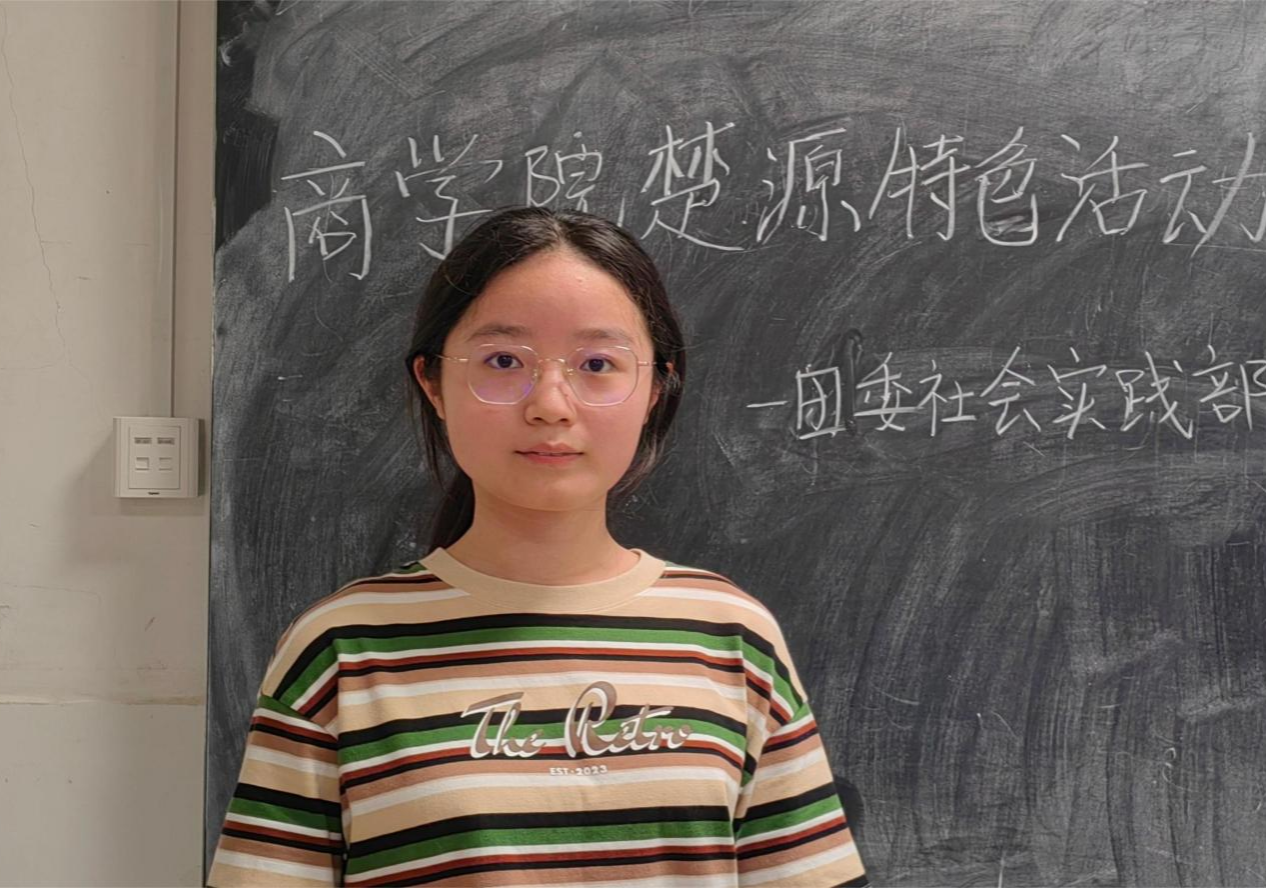 商学院楚源特色活动
一团委社会实践部
The Retro
EST-2023